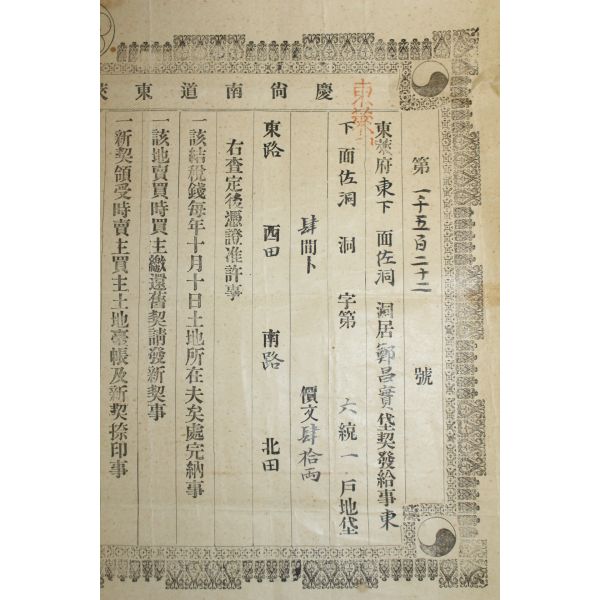 慶尙南道東萊
東萊
第 一千五百二十二 號
東萊府東下面佐洞洞居鄭昌實垈契發給事東
下面佐洞洞字第六統一戶地垈
肆間卜 價文肆拾兩
東路 西田 南路 北田
右査定後憑證准許事
一該結稅錢每年十月十日土地所在夫矣處完納事
一該地賣買時買主繳還舊契請發新契事
一新契領受時賣主買主土地臺帳及新契捺印事